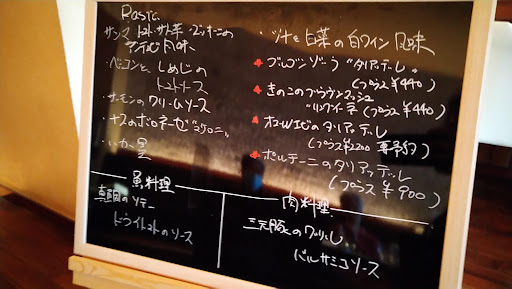 Pasta
・ベーコンと、しめじの
トマトソース
・サーモンのクリームソース
・ナスのボロネーゼ"ミケローニ"
・いか墨
・ツナと白菜の白ワイン風味
・ゴルゴンゾーラ"タリアテーレ"
(プラス¥440)
・きのこのブラウンマッシュ
(プラス¥440)
・オマールエビのタリアテーレ
(プラス¥2200 要予約)
・ポルチーニのタリアテーレ
(プラス¥900)
魚料理
真鯛のソテー
ドライトマトのソース
肉料理
三元豚のグリル
バルサミコソース